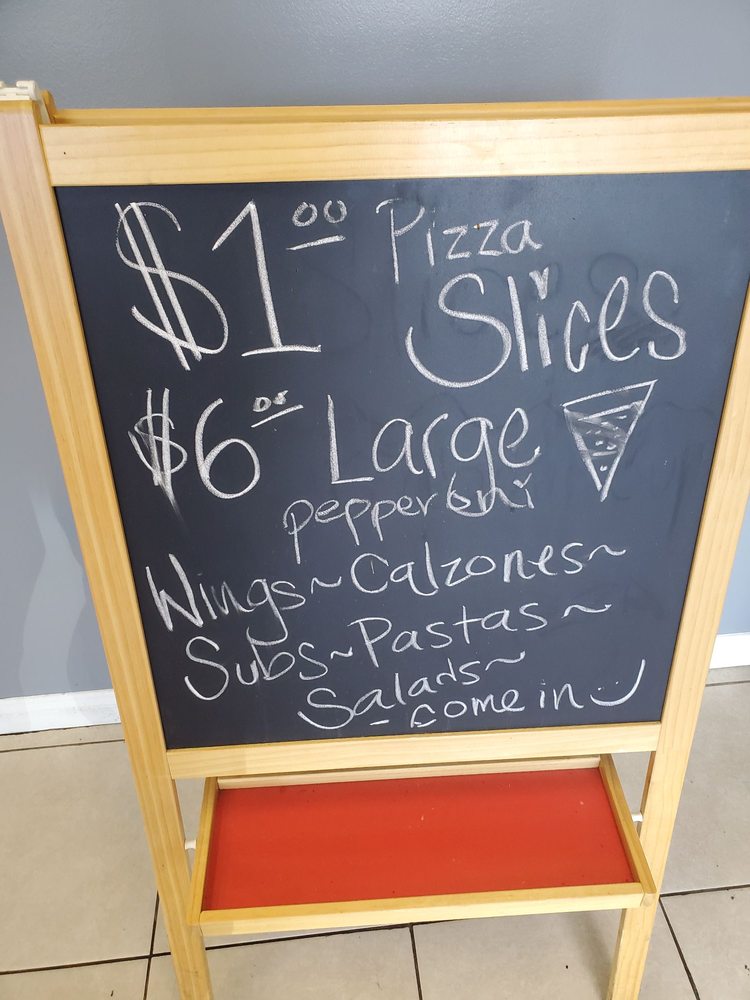 $1.00 Pizza
Slices
$6.00 Large
pepperoni
Wings~Calzones~
Subs~Pastas~
Salads~
- Come in :)